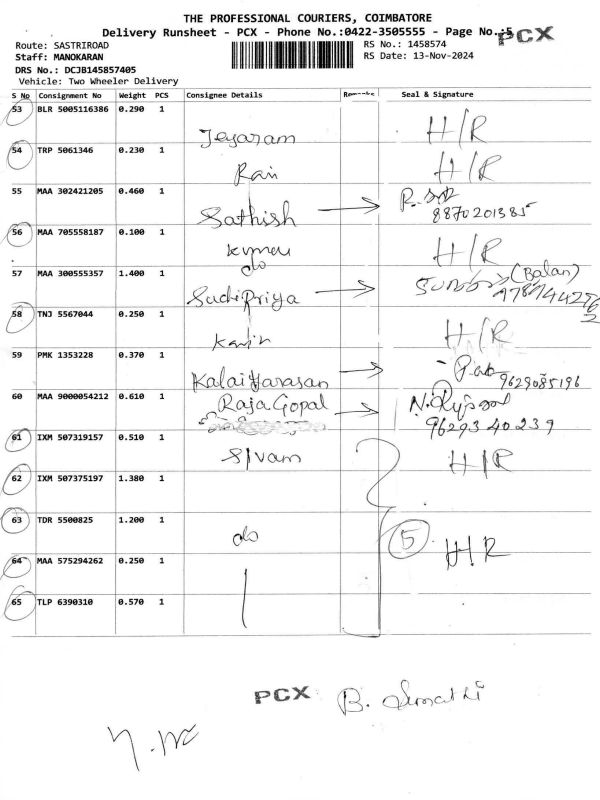 THE PROFESSIONAL COURIERS, COIMBATORE
Delivery Runsheet - PCX - Phone No.:0422-3505555 - Page No.:5
PCX
Route: SASTRIROAD
RS No.: 1458574
Staff: MANOKARAN
RS Date: 13-Nov-2024
DRS No.: DCJB145857405
Vehicle: Two Wheeler Delivery
S No Consignment No Weight PCS Consignee Details Remarks Seal & Signature
53 BLR 5005116386 0.290 1
Jeyaram H/R
54 TRP 5061346 0.230 1
H/R
55 MAA 302421205 0.460 1
Sathish
8870201385
56 MAA 705558187 0.100 1
H/R
do
57 MAA 300555357 1.400 1
SuchiPriya (Balan)
58 TNJ 5567044 0.250 1
H/R
59 PMK 1353228 0.370 1
Kalaiyarasan 9629085196
60 MAA 9000054212 0.610 1
RajaGopal
9629340239
61 IXM 507319157 0.510 1
Sivam H/R
62 IXM 507375197 1.380 1
63 TDR 5500825 1.200 1
do 5 H.R
64 MAA 575294262 0.250 1
65 TLP 6390310 0.570 1
PCX B. Sumathi